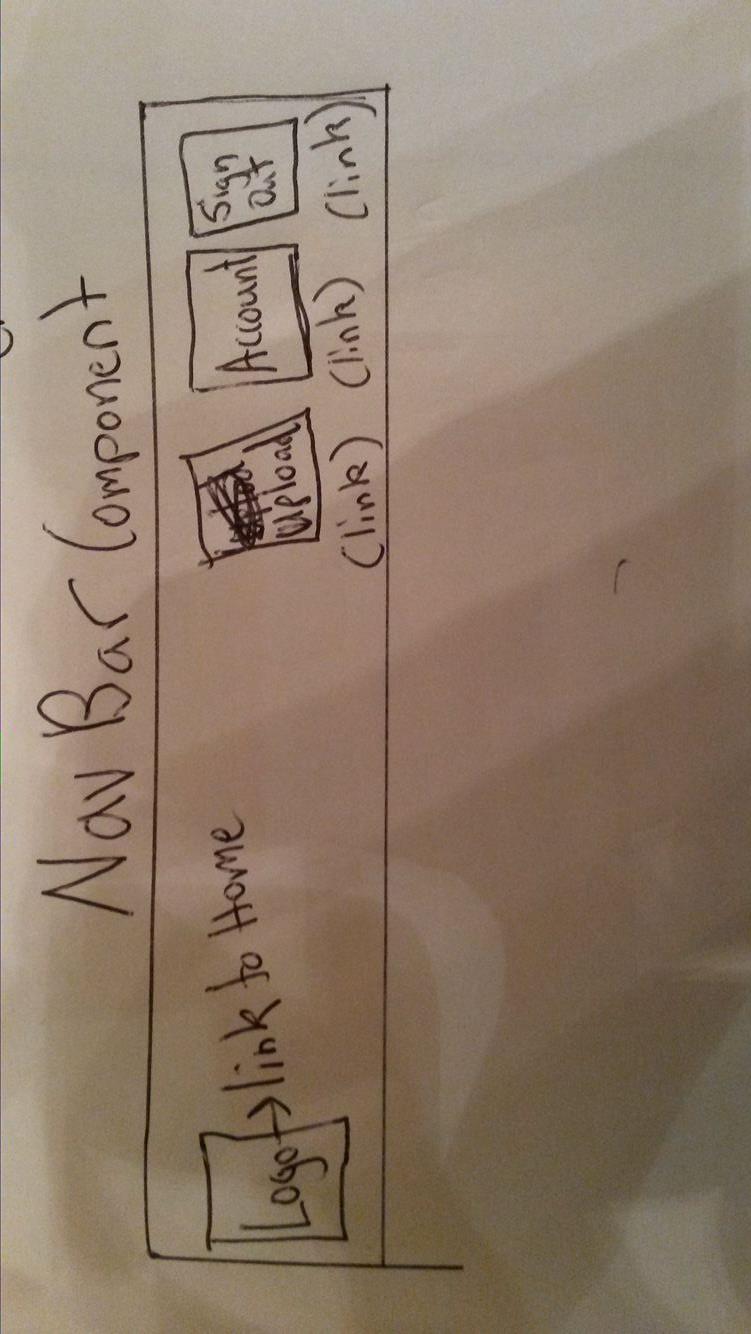 Nav Bar Component
Logo → link to Home
Upload
(link)
Account
(link)
Sign
Out
(link)